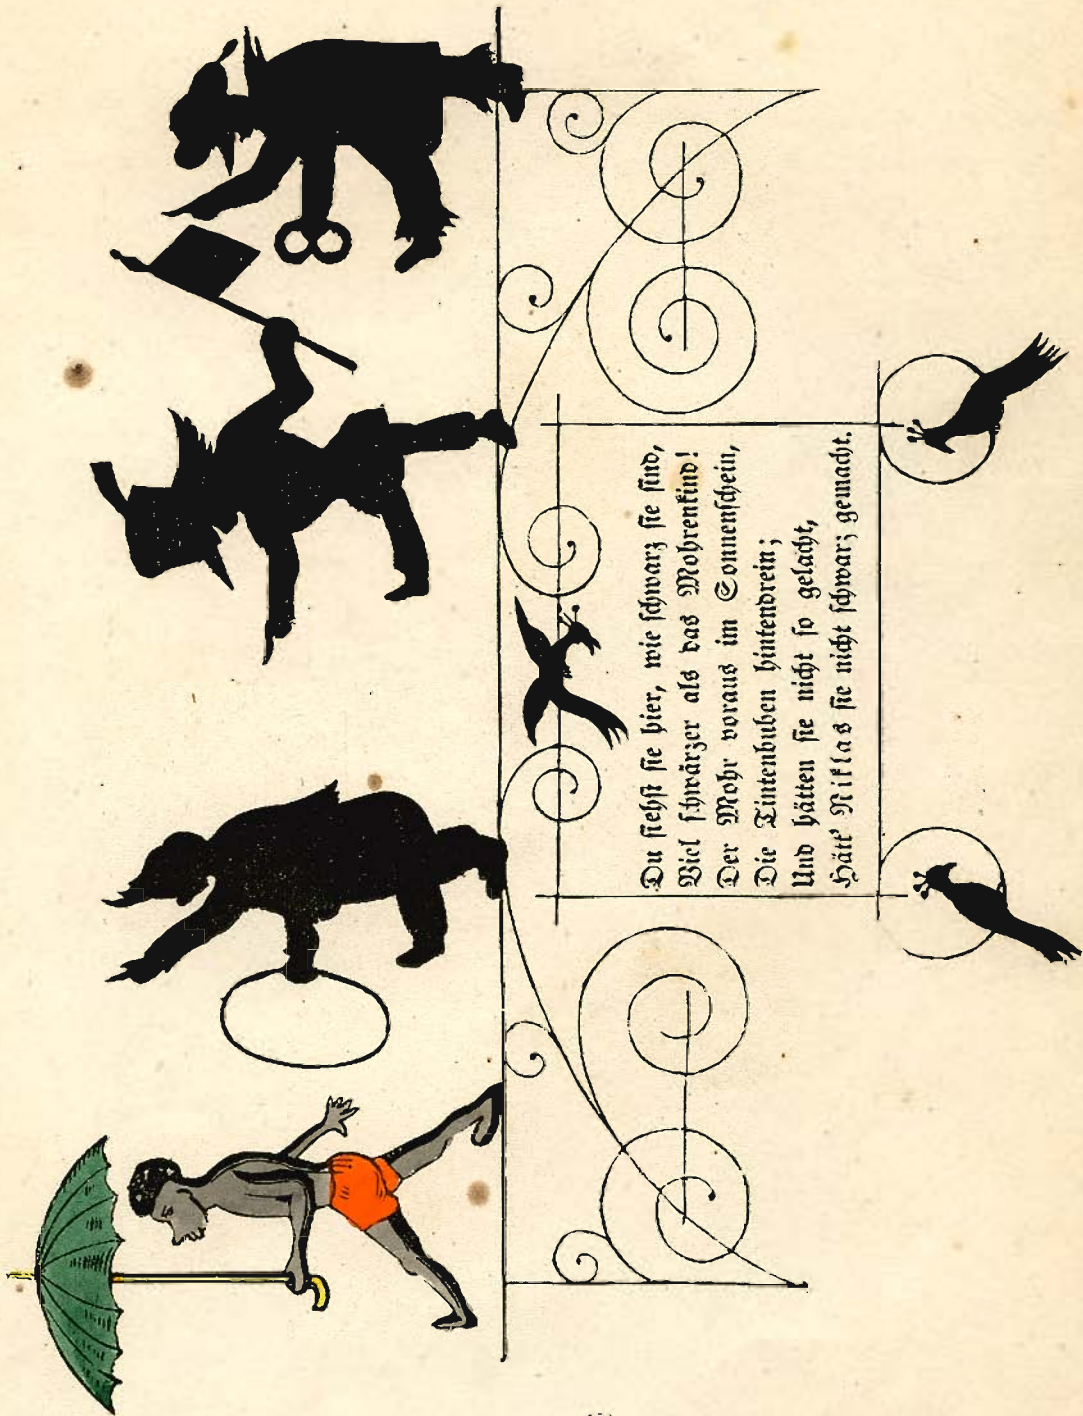 Du siehst sie hier, wie schwarz sie sind,
Viel schwärzer als das Mohrenkind!
Der Mohr voraus im Sonnenschein,
Die Tintenbuben hintendrein;
Und hätten sie nicht so gelacht,
Hätt' Niklas sie nicht schwarz gemacht.